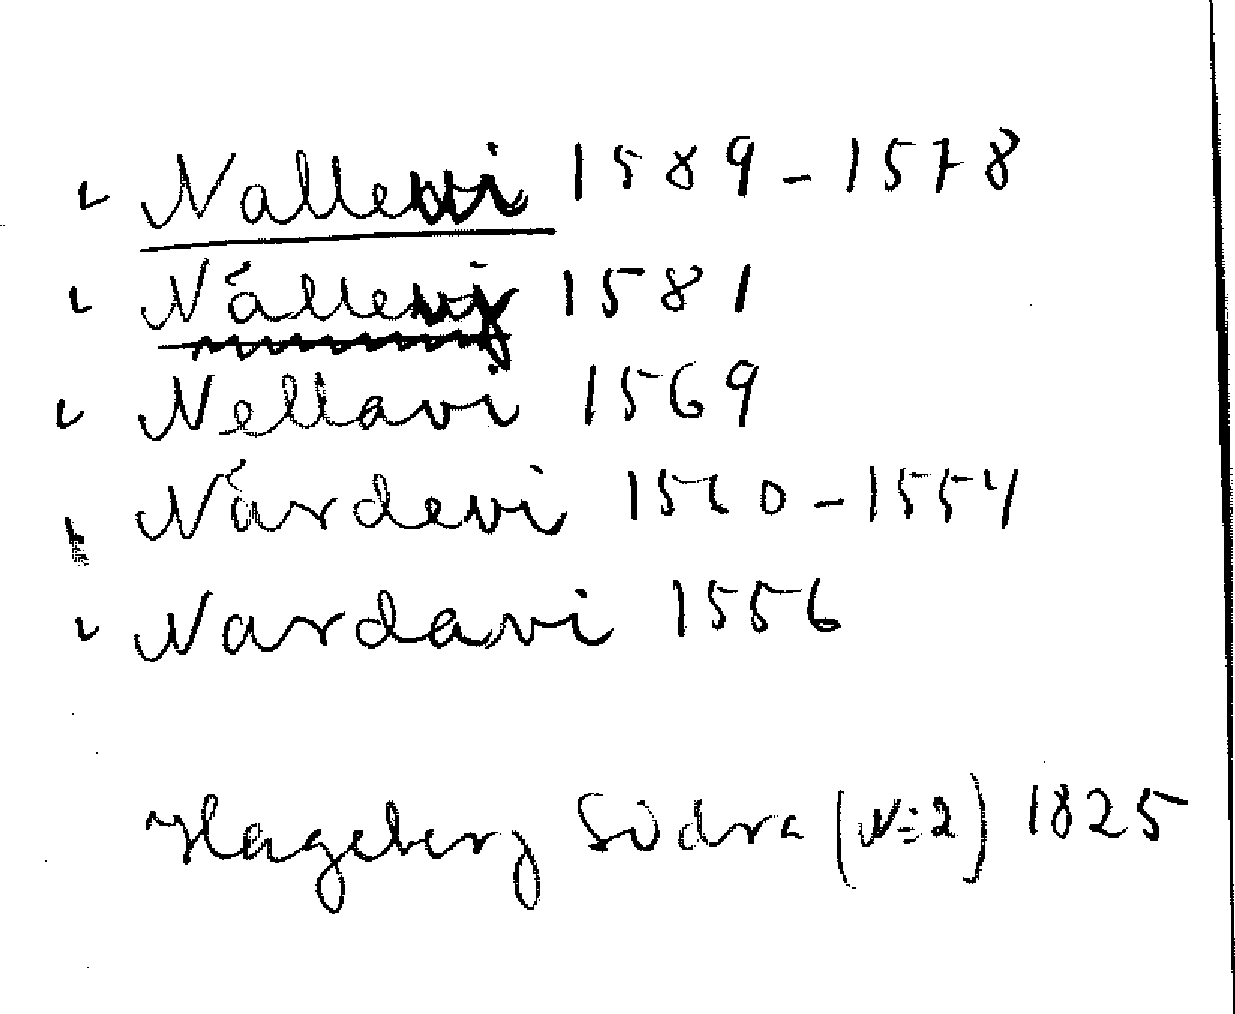 Nallevi 1589-1578
Nállevi 1581
Nellavi 1569
Nárdevi 1560-1554
Nardavi 1556
Hageberg Södra (N:2) 1825